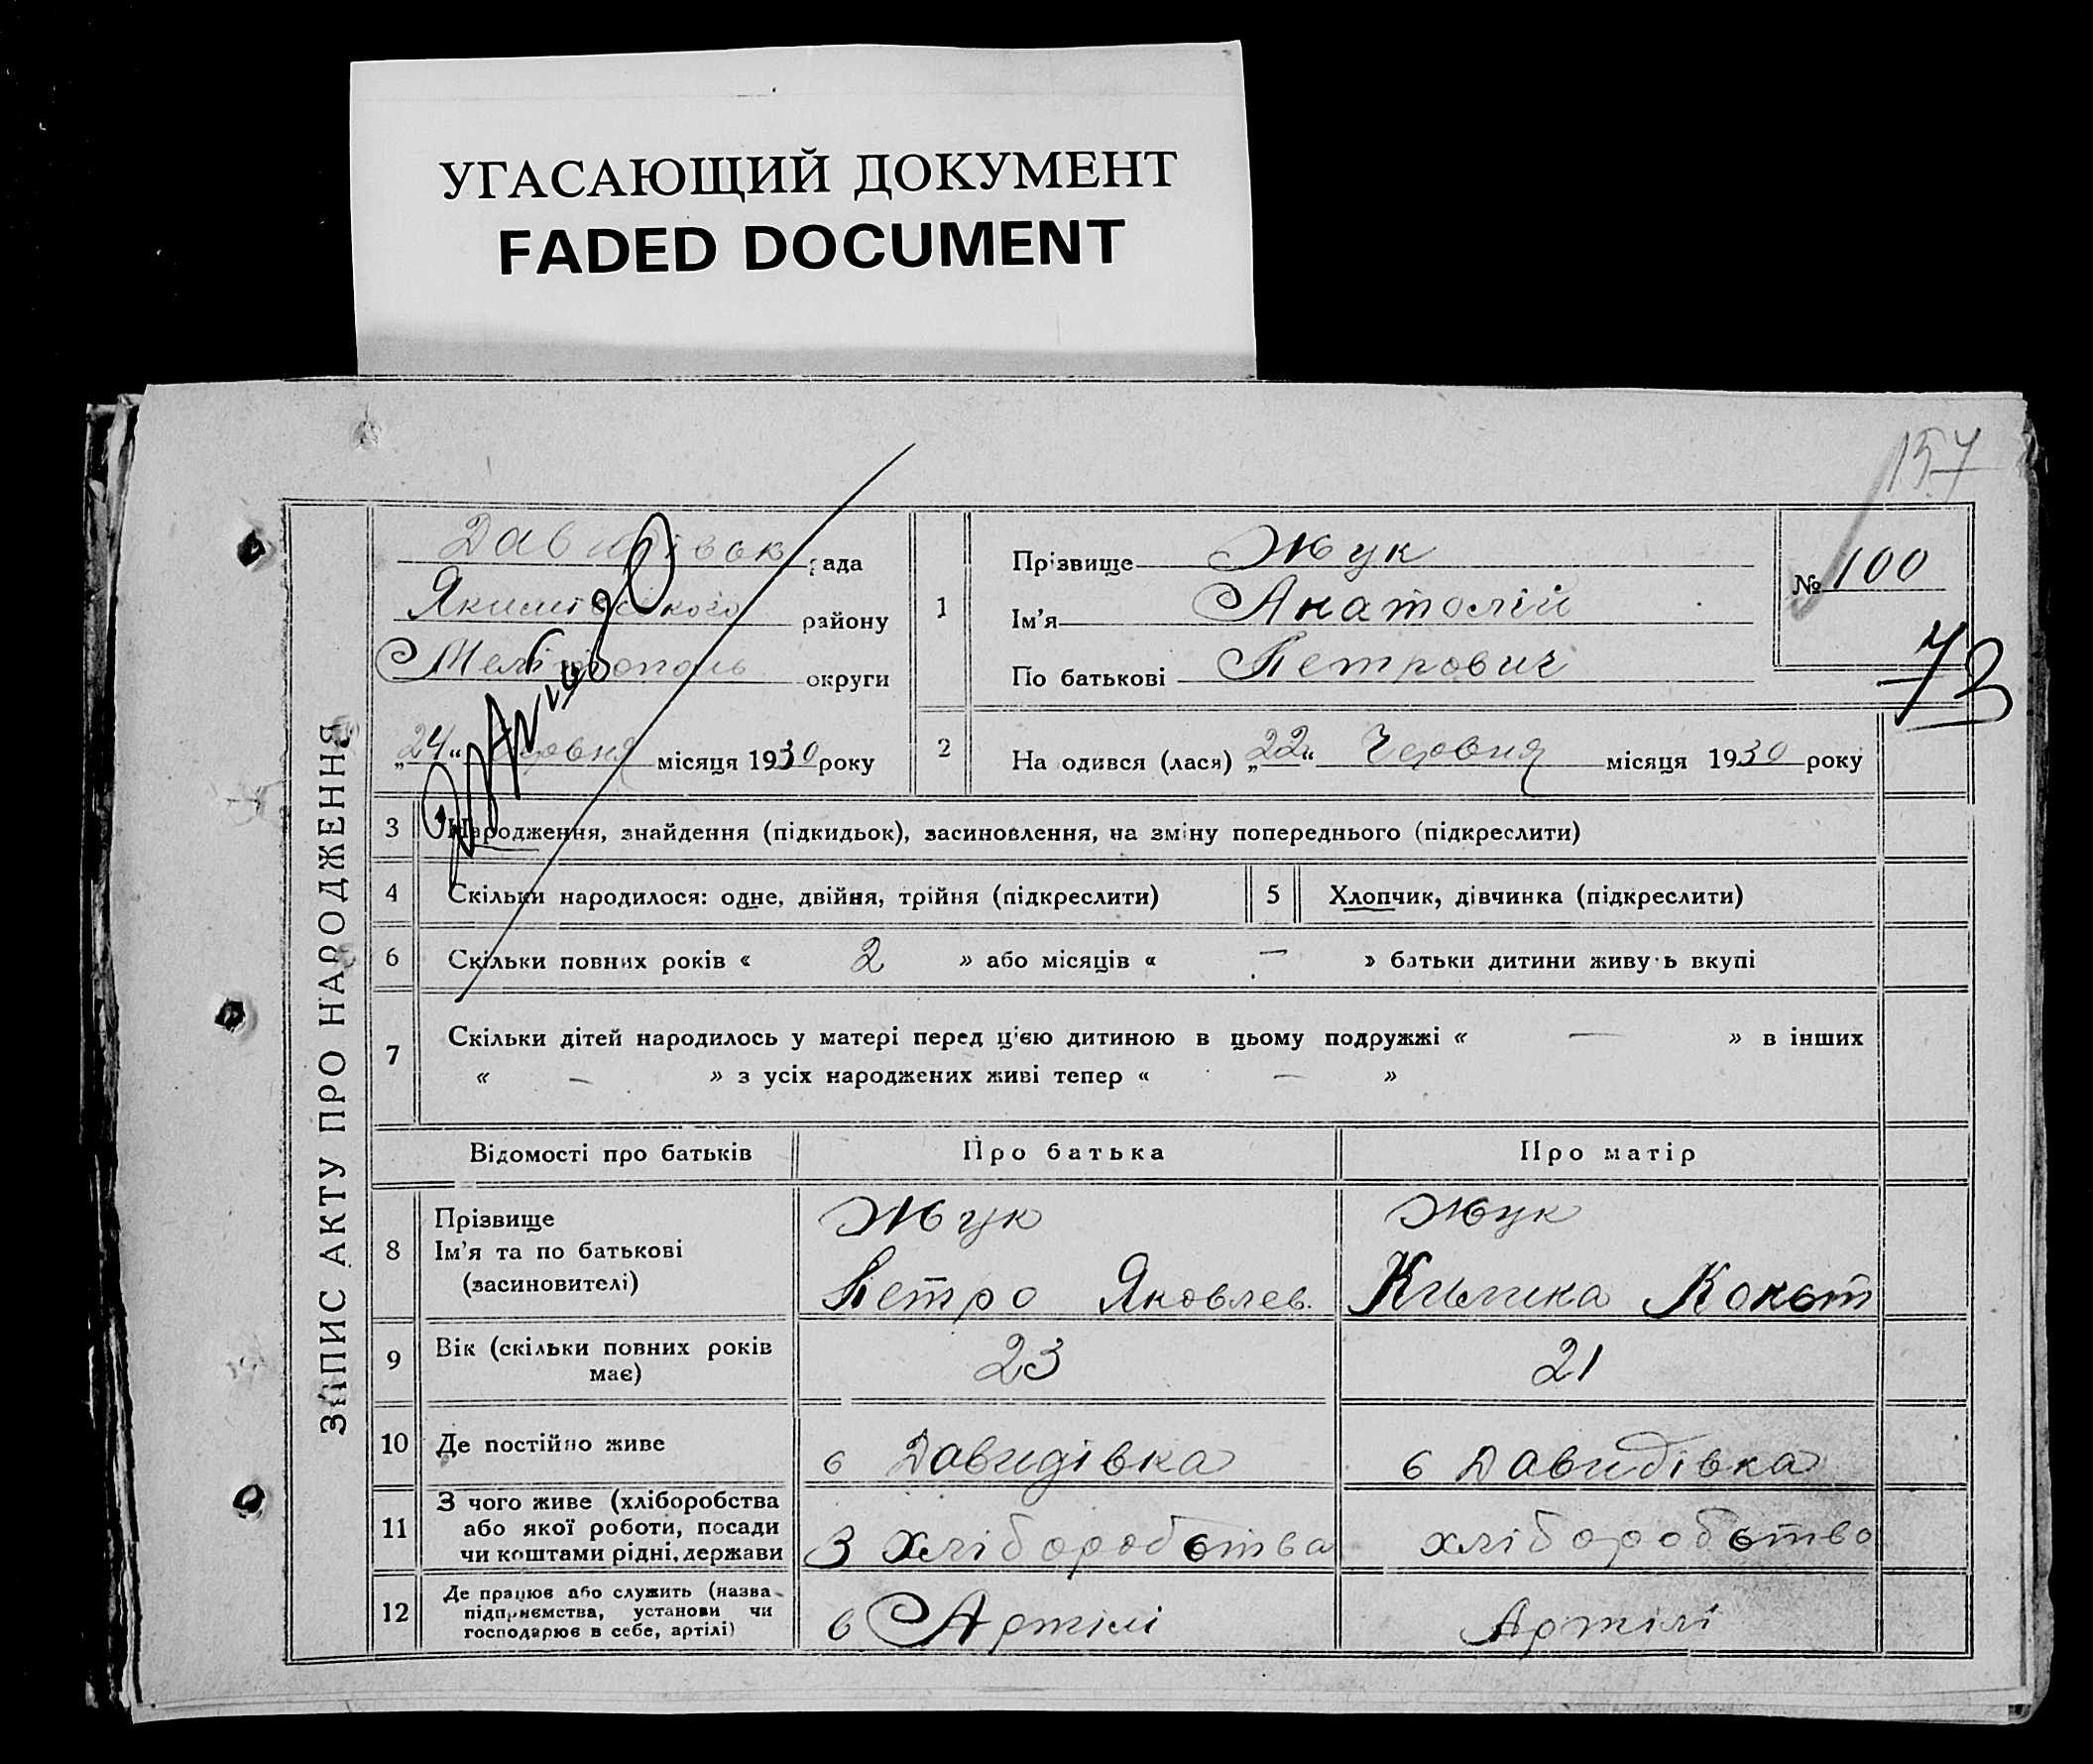 УГАСАЮЩИЙ ДОКУМЕНТ
FADED DOCUMENT
157
ЗАПИС АКТУ ПРО НАРОДЖЕННЯ
Давидівск рада
Якимівського району
Мелітополь округи
„24“ Червня місяця 1930 року
1
Прізвище Жук
Ім'я Анатолій
По батькові Петрович
№ 100
73
2 На одився (лася) „22“ Червня місяця 1930 року
3 Народження, знайдення (підкидьок), засиновлення, на зміну попереднього (підкреслити)
4 Скільки народилося: одне, двійня, трійня (підкреслити)
5 Хлопчик, дівчинка (підкреслити)
6 Скільки повних років « 2 » або місяців « — » батьки дитини живу ь вкупі
7 Скільки дітей народилось у матері перед ц'єю дитиною в цьому подружжі « — » в інших
« — » з усіх народжених живі тепер « — »
Відомості про батьків Про батька Про матір
8 Прізвище
Ім'я та по батькові
(засиновителі)
Жук
Петро Яковлев.
Жук
9 Вік (скільки повних років
має)
23 21
10 Де постійно живе
в Давидівка в Давидівка
11 З чого живе (хліборобства
або якої роботи, посади
чи коштами рідні, держави
З хліборобства хліборобство
12 Де працює або служить (назва
підприємства, установи чи
господарює в себе, артілі)
в Артілі Артілі